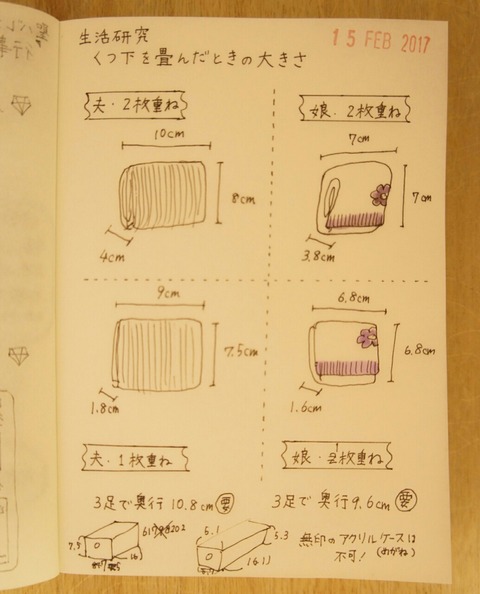 生活研究
くつ下を畳んだときの大きさ
15 FEB 2017
夫・2枚重ね
10cm
8cm
4cm
娘・2枚重ね
7cm
7cm
3.8cm
9cm
7.5cm
1.8cm
6.8cm
6.8cm
1.6cm
夫・1枚重ね
娘・1枚重ね
3足で奥行10.8cm 要
3足で奥行9.6cm 要
7.5
6.1
5.3
16.1
無印のアクリルケースは
不可! (めがね)